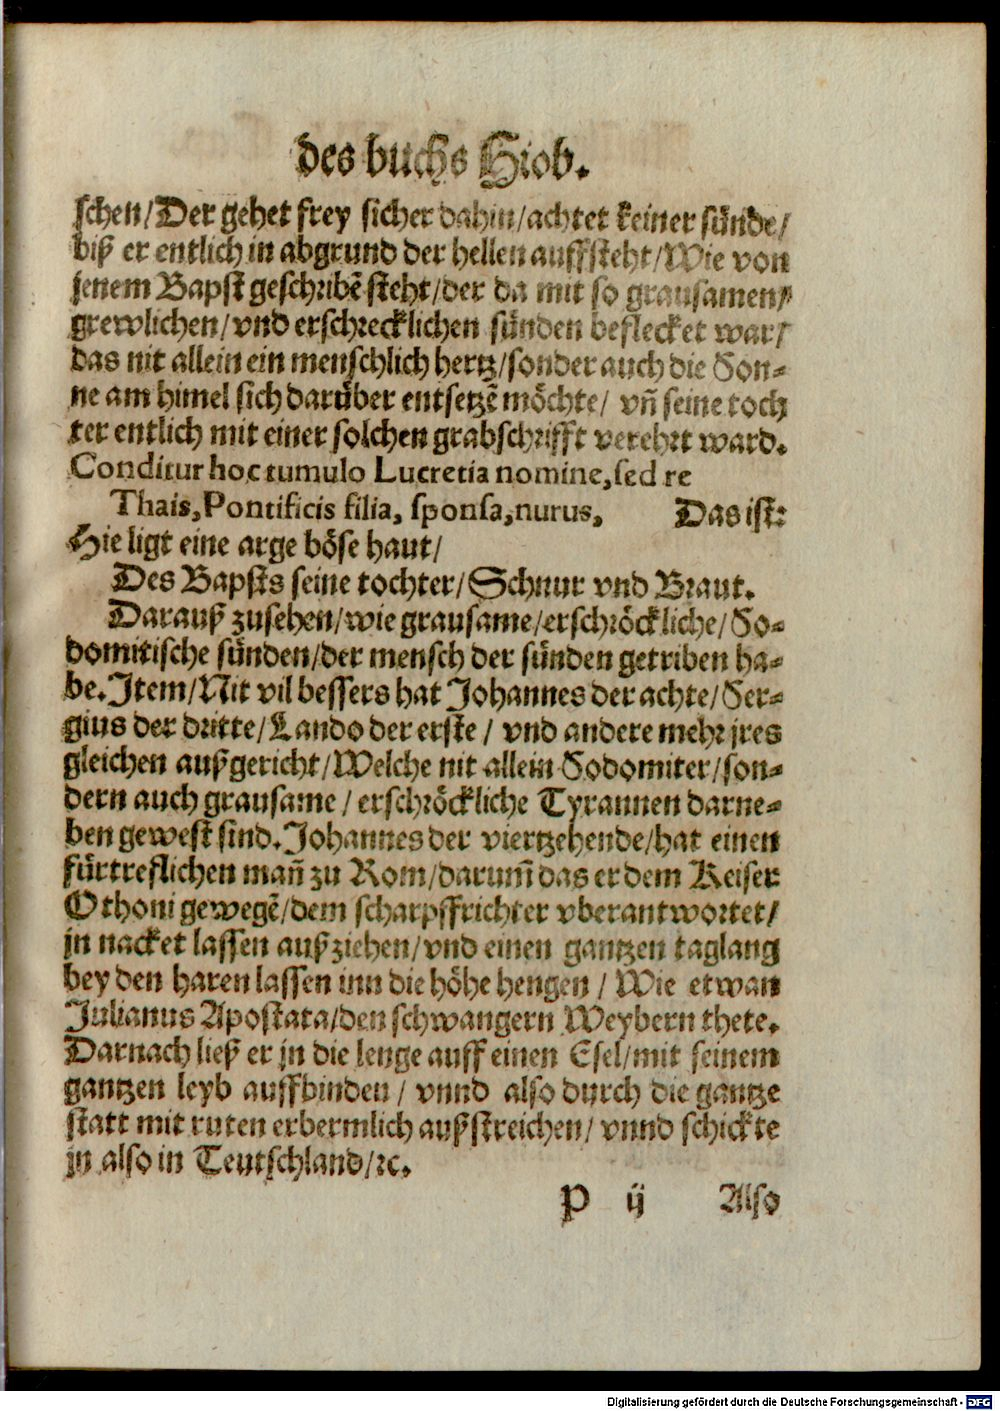 des buchs Hiob.
schen/Der gehet frey sicher dahin/achtet keiner sünde/
biß er entlich in abgrund der hellen auffsteht/Wie von
jenem Bapst geschribē steht/der da mit so grausamen/
grewlichen/vnd erschrecklichen sünden beflecket war/
das nit allein ein menschlich hertz/sonder auch die Son-
ne am himel sich darüber entsetzē möchte/ vñ seine toch
ter entlich mit einer solchen grabschrifft verehrt ward.
Conditur hoc tumulo Lucretia nomine, sed re
Thais, Pontificis filia, sponsa, nurus, Das ist:
Hie ligt eine arge böse haut/
Des Bapsts seine tochter/Schnur vnd Braut.
Darauß zusehen/wie grausame/erschröckliche/So-
domitische sünden/der mensch der sünden getriben ha-
be. Item/Nit vil bessers hat Johannes der achte/Ser-
gius der dritte/Lando der erste / vnd andere mehr jres
gleichen außgericht/Welche nit allein Sodomiter/son-
dern auch grausame / erschröckliche Tyrannen darne-
ben gewest sind. Johannes der viertzehende/hat einen
fürtreflichen mañ zu Rom/darum̃ das er dem Keiser
Othoni gewegē/dem scharpffrichter vberantwortet/
jn nacket lassen außziehen/vnd einen gantzen taglang
bey den haren lassen inn die höhe hengen / Wie etwan
Julianus Apostata/den schwangern Weybern thete.
Darnach ließ er jn die lenge auff einen Esel/mit seinem
gantzen leyb auffbinden / vnnd also durch die gantze
statt mit ruten erbermlich außstreichen/ vnnd schickte
jn also in Teutschland/ꝛc.
P ij Also
Digitalisierung gefördert durch die Deutsche Forschungsgemeinschaft - DFG